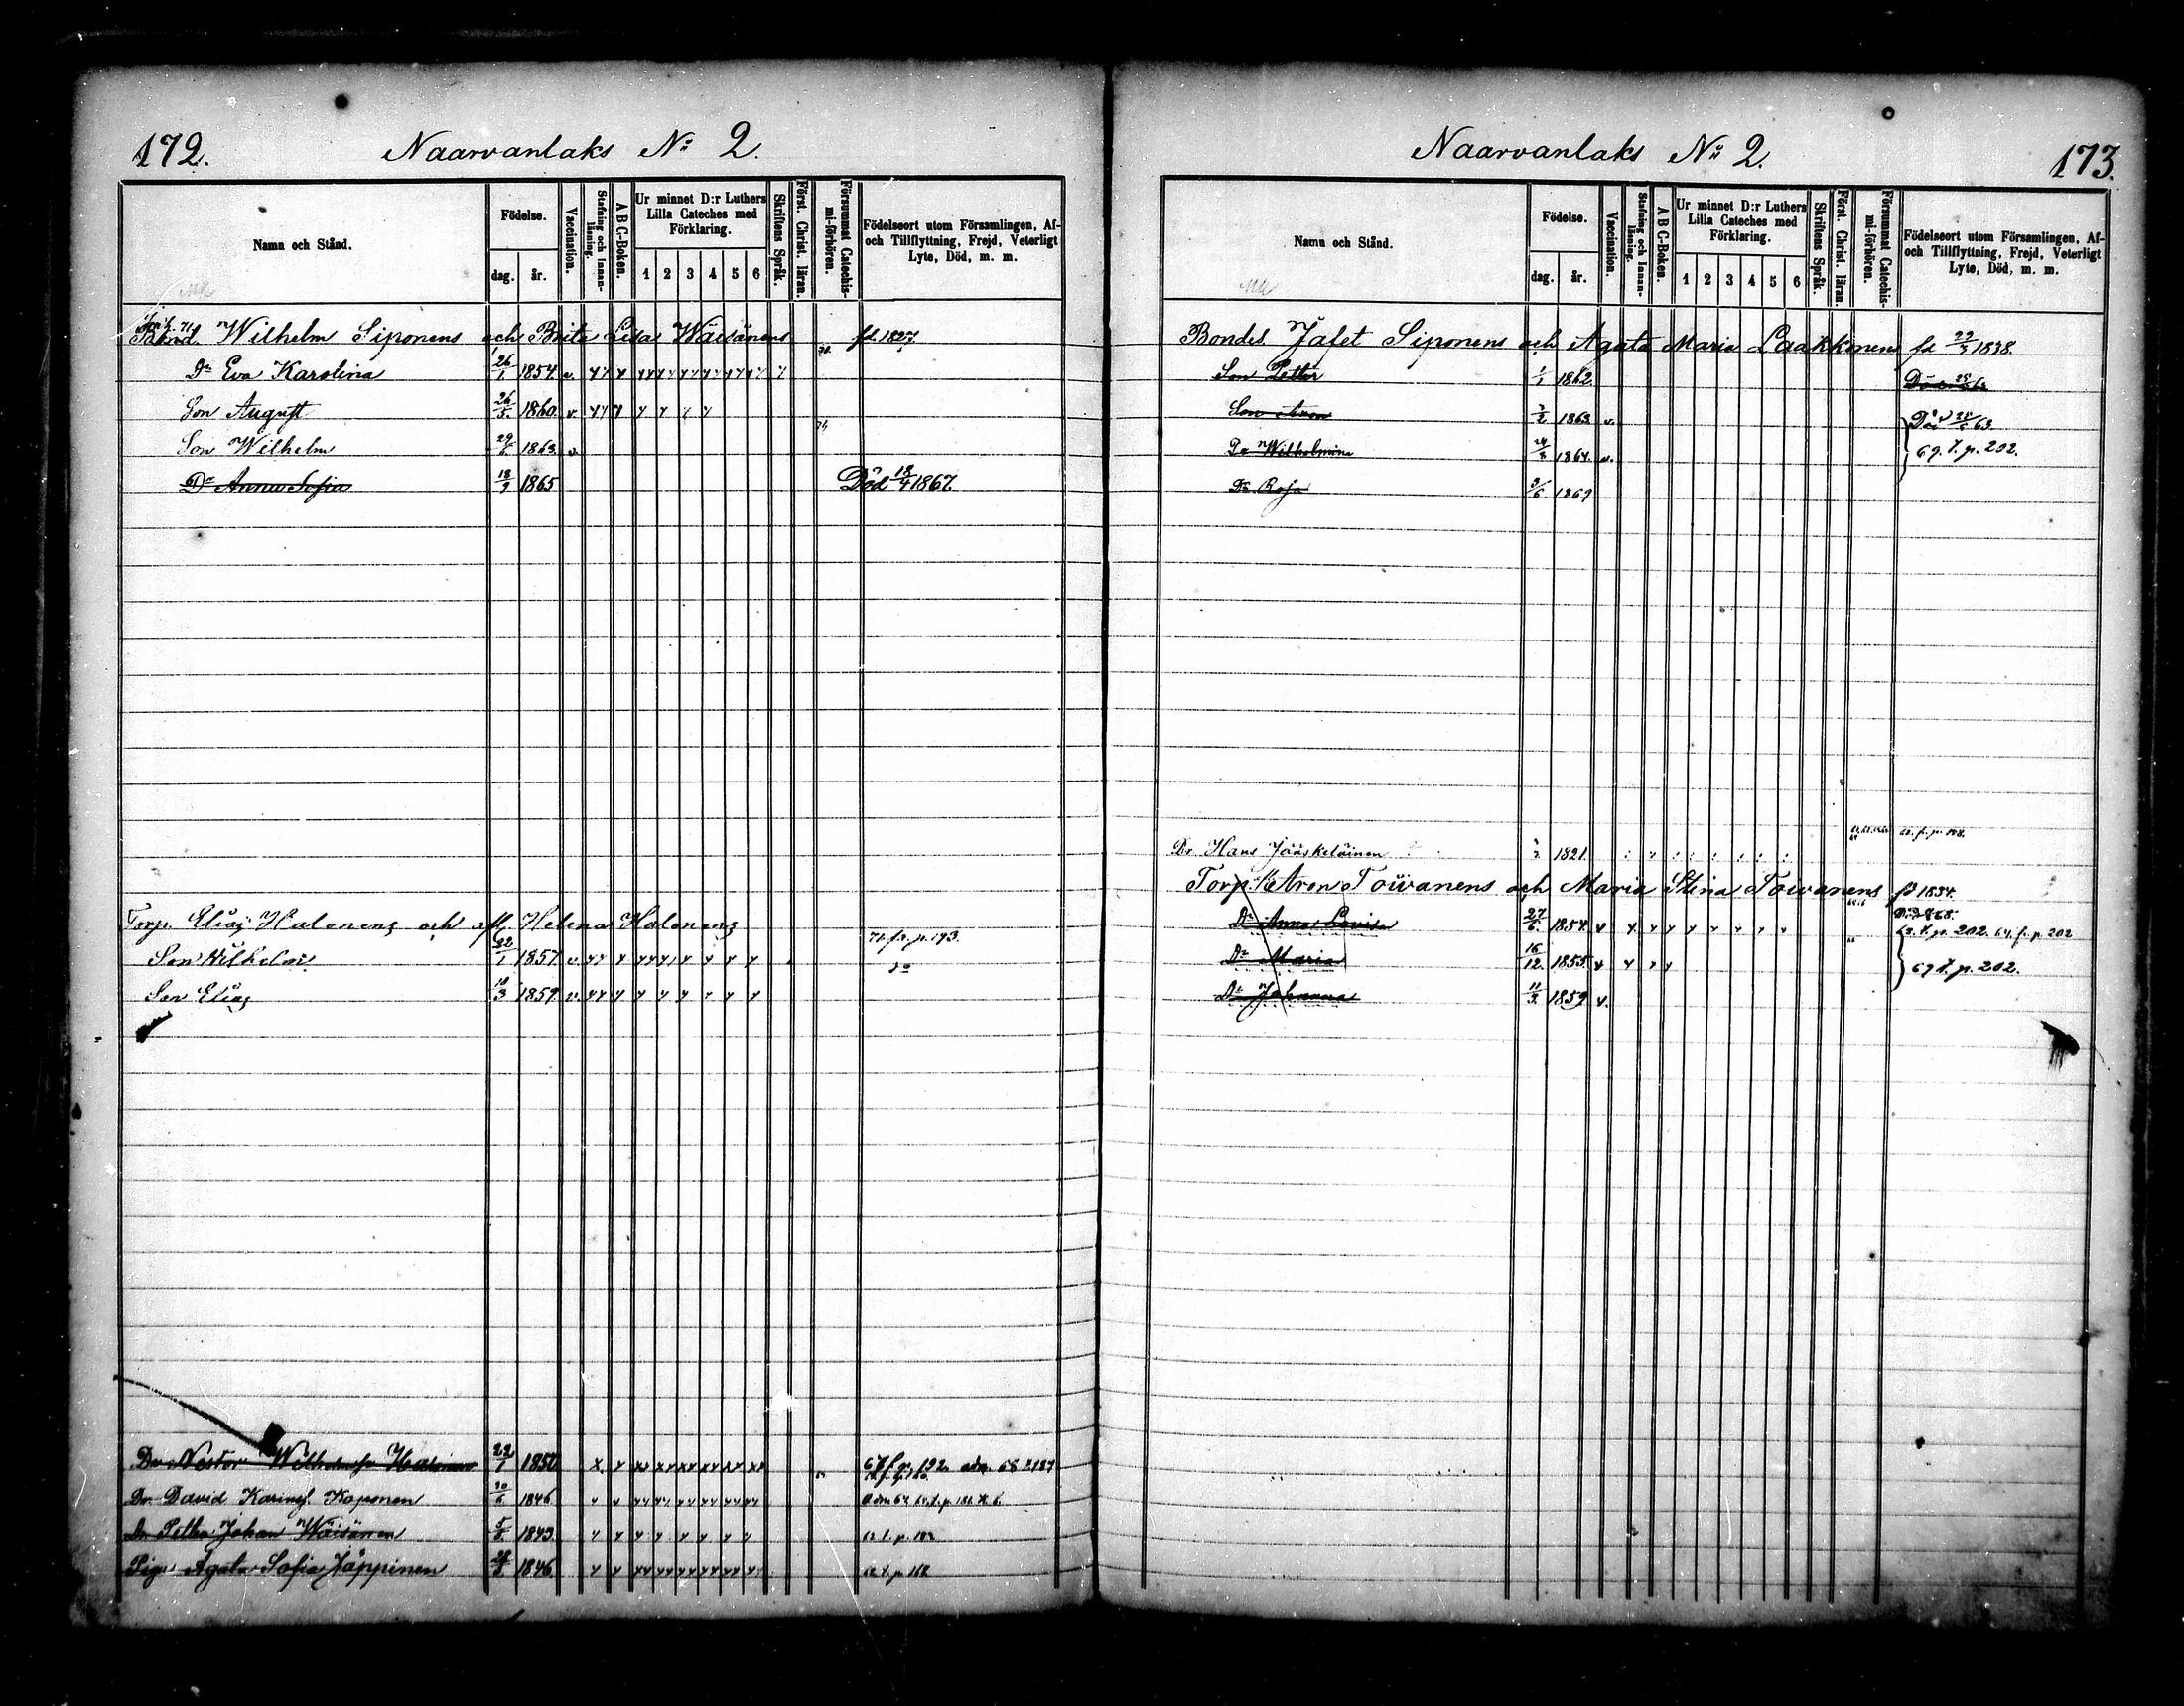 172.
Naarvanlaks № 2.
Namn och Stånd.
Födelse.
dag.
år.
Vaccination.
Stafning och Innan-läsning.
A B C-Boken.
Ur minnet D:r Luthers
Lilla Cateches med
Förklaring.
1 2 3 4 5 6
Skriftens Språk.
Först. Christ. läran.
Försummat Catechis-mi-förhören.
Födelseort utom Församlingen, Af-
och Tillflyttning, Frejd, Veterligt
Lyte, Död, m. m.
Wilhelm Siponens och Brita Lisa Wäisänens fd. 1827.
Dr Eva Karolina 26/1 1854. v.
Son August 26/5. 1860. v.
Son Wilhelm 29/6 1863. v.
Dr Anna Sofia 18/9 1865 Död 18/4 1867.
Torp. Elias Halonens och afl. Helena Halonens
Son Wilhelm 22/1 1857. v. 71. fr. p. 193.
Son Elias 10/3 1859. v. do
Dr. Nestor Wilhelmsson Halonen 22/1 1850 67 f. p. 192.
Dr. David Karinas. Koponen 30/6 1846.
Dr. Petter Johan Wäisänen 5/8 1843. 62 t. p. 182
Pig. Agata Sofia Jäppinen 28/8 1846. 62 t. p. 168
173.
Naarvanlaks № 2.
Namn och Stånd.
Födelse.
dag.
år.
Vaccination.
Stafning och Innan-läsning.
A B C-Boken.
Ur minnet D:r Luthers
Lilla Cateches med
Förklaring.
1 2 3 4 5 6
Skriftens Språk.
Först. Christ. läran.
Försummat Catechis-mi-förhören.
Födelseort utom Församlingen, Af-
och Tillflyttning, Frejd, Veterligt
Lyte, Död, m. m.
Bondes. Jafet Siponens och Agata Maria Laakkonens fd 22/3 1838.
Son Petter 1/1 1862.
Son Aron 1863. v. Död 63.
Dr Wilhelmina 1864. v. 69. t. p. 202.
Dr Rosa 3/6 1867
Dr. Hans Jääskeläinen 1821.
Torp. Petren Toiwanens och Maria Stina Toiwanens fd 1834.
Dr Anna Lovisa 27/6. 1854. v 62. t. p. 202. 64. f. p. 202
Dr Maria 16/12. 1855. v 67 t. p. 202.
Dr Johanna 11/3 1859 v.